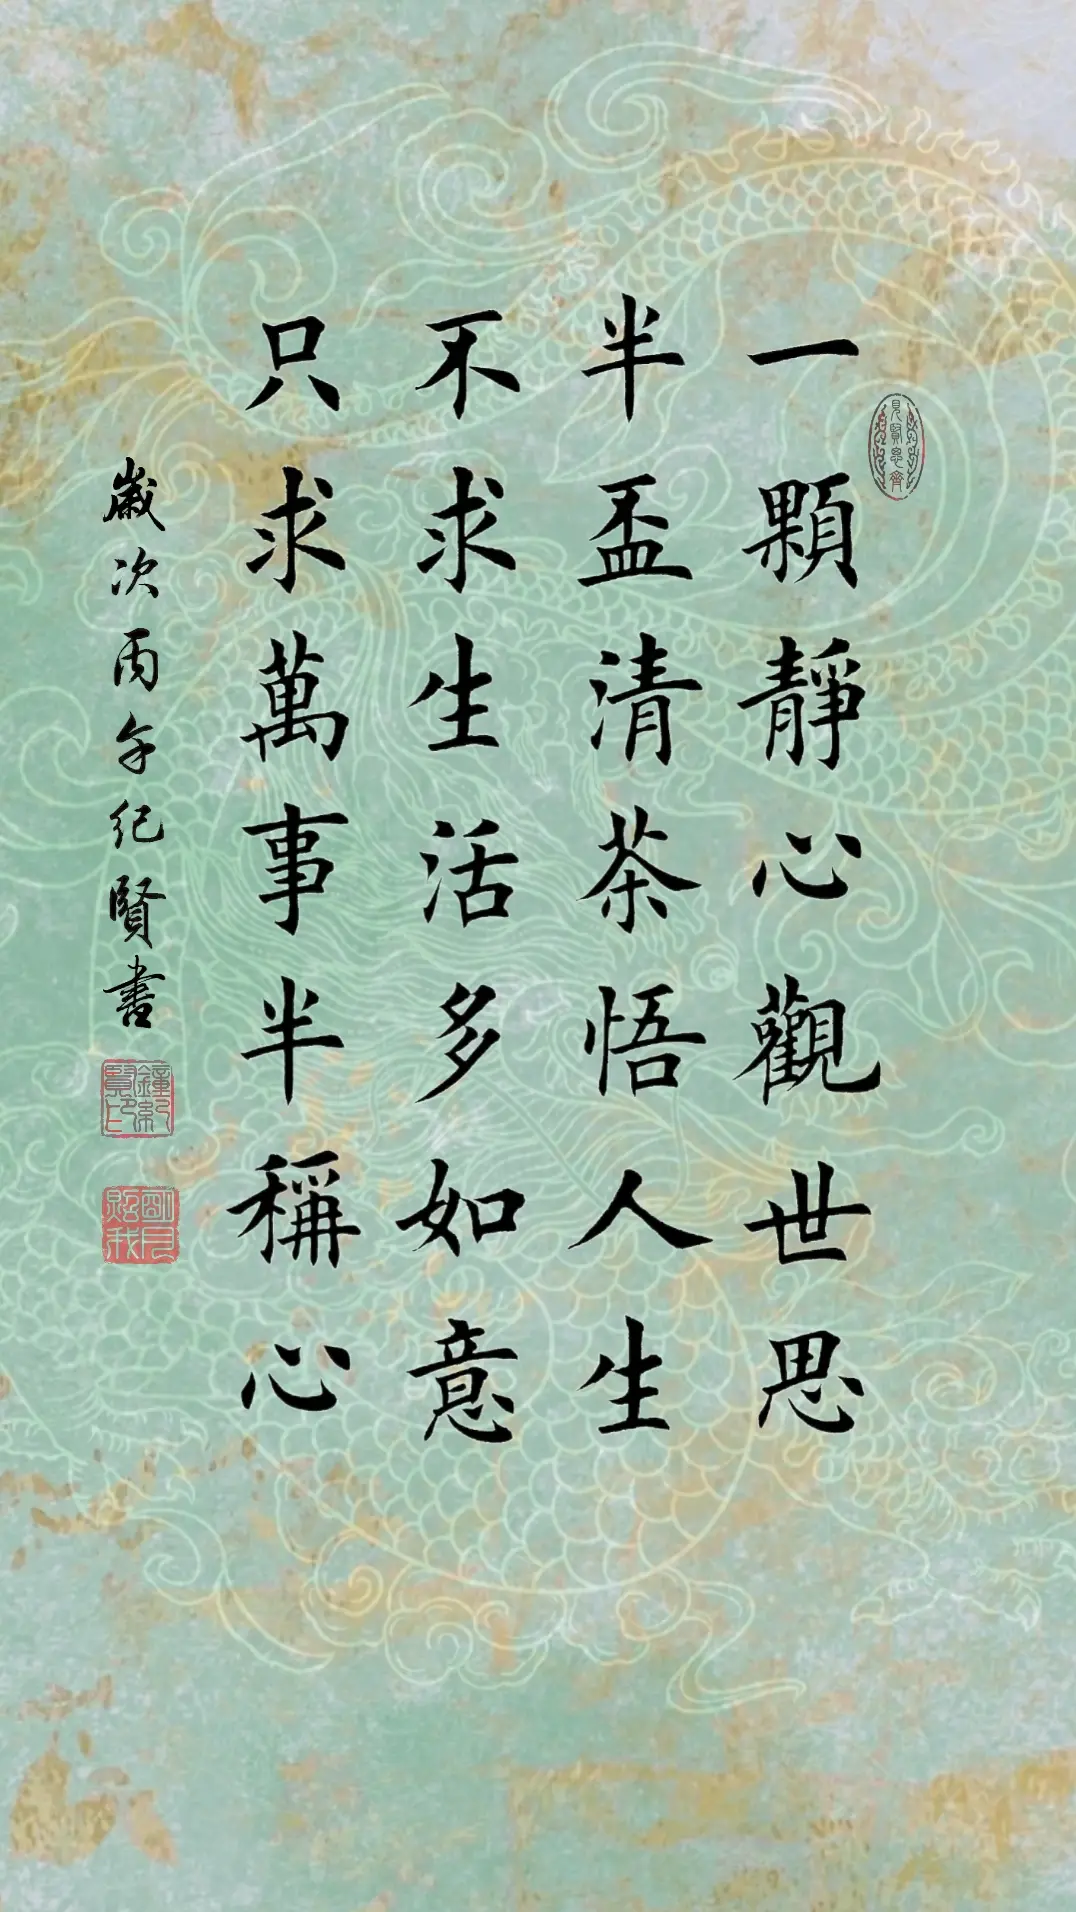 一顆靜心觀世思
半盃清茶悟人生
不求生活多如意
只求萬事半稱心
歲次丙午紀賢書
見賢思齊
鐘紀賢印